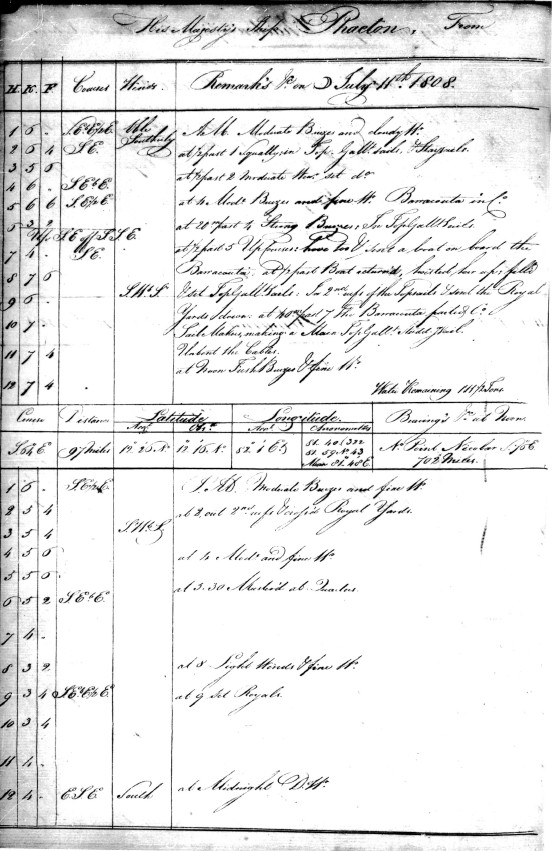 His Majesty's Ship Phaeton, From
H. K. F Courses Winds Remarks &c on July 11th 1808.
1 6 . A.M. Moderate Breezes and cloudy Wr
2 6 4 S.E. Southerly at ½ past 1 Squally, in Top Gallt Sails & Staysails
3 5 6 at ½ past 2 Moderate Wr set do
4 6 . S.E.b.E.
5 6 6 at 4 Modt Breezes and fine Wr Barracouta in Co
6 3 2 at 20 mt past 4 Strong Breezes; In TopGallt Sails.
Up S.E off S.S.E.
7 4 . S.E. at ½ past 5 Up Courses hove too & sent a boat on board the
Barracouta, at ½ past Boat returned, hoisted her up; filled
8 7 6
9 6 . S.Wb.S. & set TopGallt Sails. In 2nd reefs of the Topsails & sent the Royal
Yards down. at 40 mt past 7 The Barracouta parted Co
10 7 . Sail Makers making a Main TopGallt Studd Sail
11 7 4 Unbent the Cables.
12 7 4 at Noon Fresh Breezes & fine Wr
Water Remaining Tons
Course Distance Latitude Longitude Bearing's &c at Noon.
Acct Obs. Acct Chronometers
S.64 E. 97 Miles 12° 1° 15 N. 82° 1 E No. Point Nicobar S. 75 E
702 Miles.
1 6 . P.M. Moderate Breezes and fine Wr
2 5 4 at 2, out 2nd reefs & crossed Royal Yards.
3 5 4 S.Wb.S.
4 5 6 at 4 Modt and fine Wr
5 5 6
6 5 2 S.E.b.E. at 5.30 Muster'd at Quarters
7 4 .
8 3 2 at 8 Light Winds & fine Wr
9 3 4 at 9 set Royals.
10 3 4
11 4 .
12 4 . E.S.E. South at Midnight Do Wr